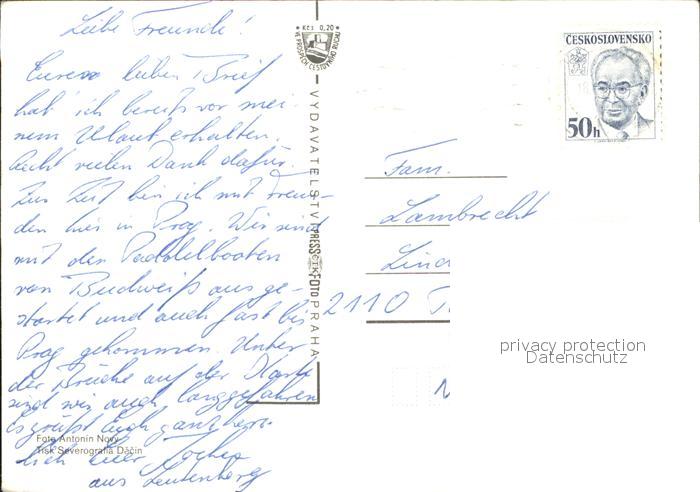 Liebe Freunde!
Euren lieben Brief
hab' ich bereits vor mei-
nem Urlaub erhalten.
Recht vielen Dank dafür.
Zur Zeit bin ich mit Freun-
den hier in Prag. Wir sind
mit den Paddelbooten
von Budweiß aus ge-
startet und auch fast bis
Prag gekommen. Unter
der Brücke auf der Karte
sind wir auch langgefahren
Es grüßt Euch ganz herz-
lich Euer Jochen
aus Leutenberg
Foto Antonín Nový
Tisk Severografia Děčín
Kčs 0,20
VE PROSPĚCH CESTOVNÍHO RUCHU
VYDAVATELSTVÍ PRESSFOTO PRAHA
ČESKOSLOVENSKO
50h
Fam.
Lambrecht
Lind
2110 T
privacy protection
Datenschutz